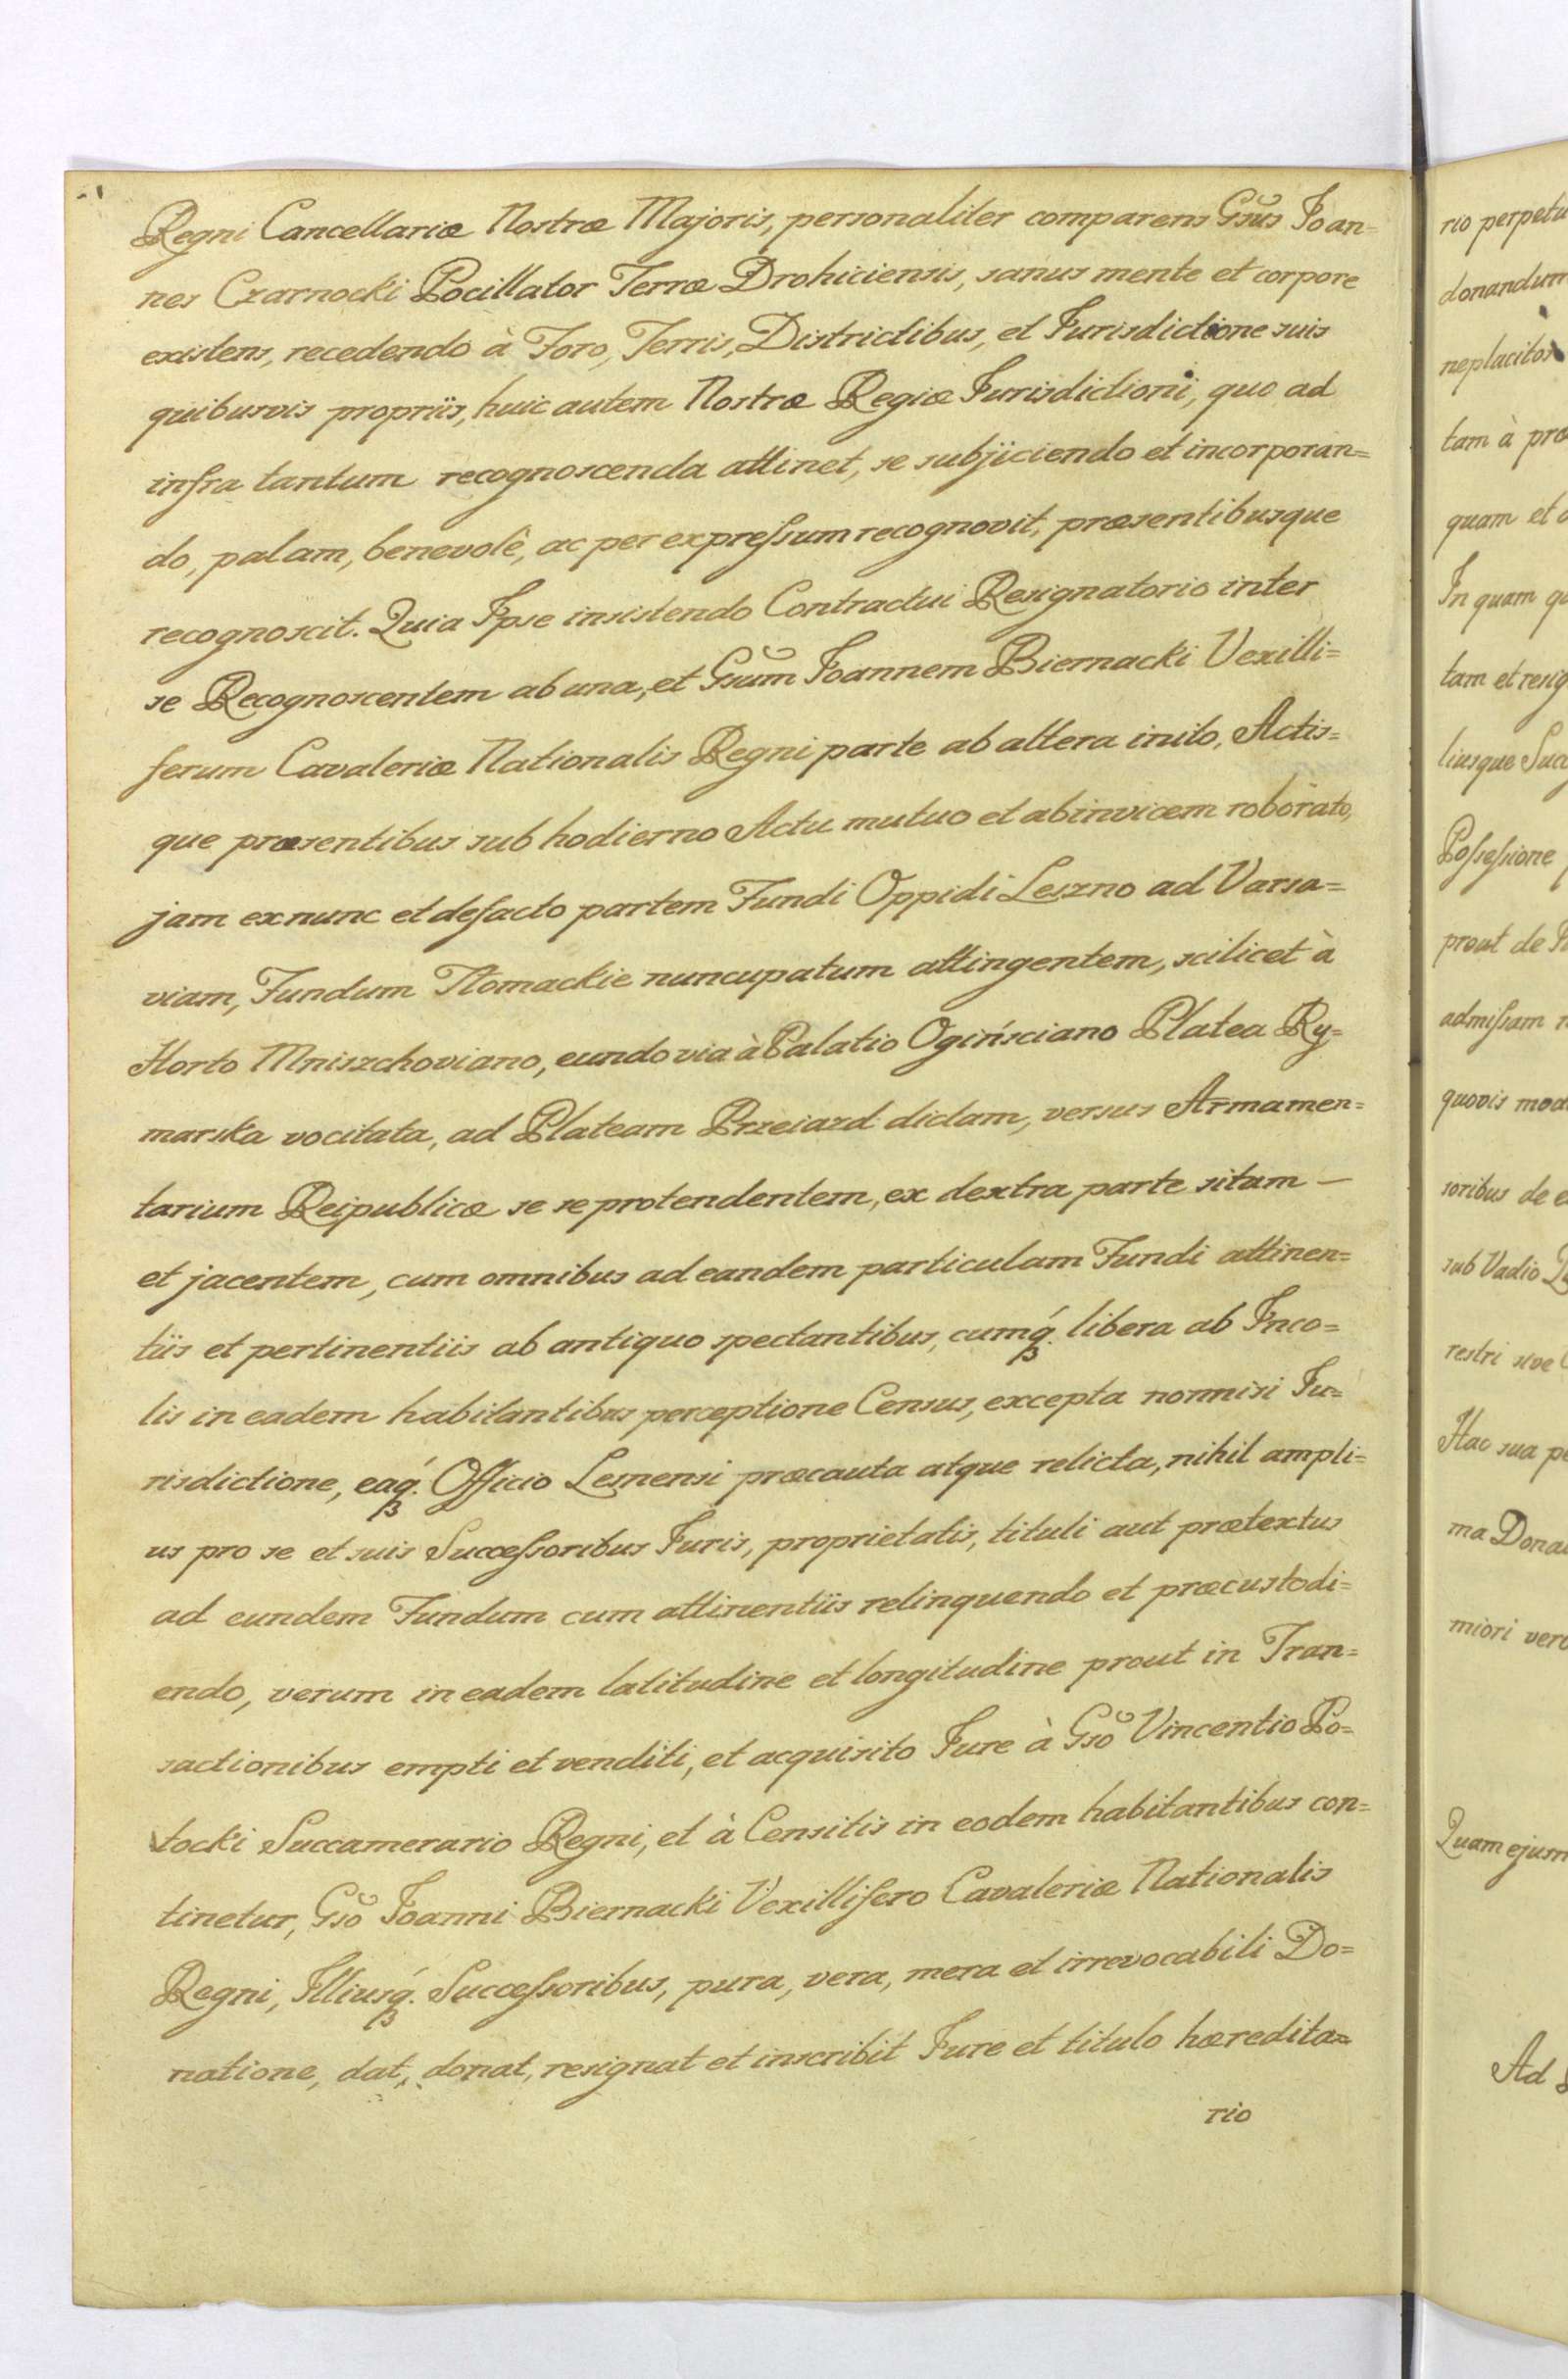 Regni Cancellariæ Nostræ Majoris, personaliter comparens Gsũs Joan=
nes Czarnocki Pocillator Terræ Drohiciensis, sanus mente et corpore
existens, recedendo à Foro, Terris, Districtibus, et Jurisdictione suis
quibusvis propriis, huic autem Nostræ Regiæ Jurisdictioni, quo ad
infra tantum recognoscenda attinet, se subjiciendo et incorporan=
do, palam, benevolè, ac per expreſsum recognovit, præsentibusque
recognoscit. Quia Ipse insistendo Contractui Resignatorio inter
se Recognoscentem ab una, et Gsũm Joannem Biernacki Vexilli=
ferum Cavaleriæ Nationalis Regni parte ab altera inito, Actis=
que præsentibus sub hodierno Actu mutuo et abinvicem roborato,
jam ex nunc et defacto partem Fundi Oppidi Leszno ad Varsa=
viam, Fundum Tłomackie nuncupatum attingentem, scilicet à
Horto Mniszchoviano, eundo via à Palatio Ogińsciano Platea Ry=
marska vocitata, ad Plateam Przeiazd dictam, versus Armamen=
tarium Reipublicæ se se protendentem, ex dextra parte sitam —
et jacentem, cum omnibus ad eandem particulam Fundi attinen=
tiis et pertinentiis ab antiquo spectantibus, cumq́. libera ab Inco=
lis in eadem habitantibus perceptione Census, excepta nonnisi Ju=
risdictione, eaq́. Officio Lesnensi præcauta atque relicta, nihil ampli=
us pro se et suis Succeſsoribus Juris, proprietatis, tituli aut prætextus
ad eundem Fundum cum attinentiis relinquendo et præcustodi=
endo, verum in eadem latitudine et longitudine prout in Tran=
sactionibus empti et venditi, et acquisito Jure à Gsõ Vincentio Po=
tocki Succamerario Regni, et à Censitis in eodem habitantibus con=
tinetur, Gsõ Joanni Biernacki Vexillifero Cavaleriæ Nationalis
Regni, Illiusq́. Succeſsoribus, pura, vera, mera et irrevocabili Do=
natione, dat, donat, resignat et inscribit Jure et titulo hæredita=
rio
rio
donandum
neplacitos
tam à
quam et
In quam
tam et
liusque
Poſseſsione
prout de
admiſsam
quovis
soribus de
sub Vadio
restri sive
Hac sua
ma
miori
Quam
Ad